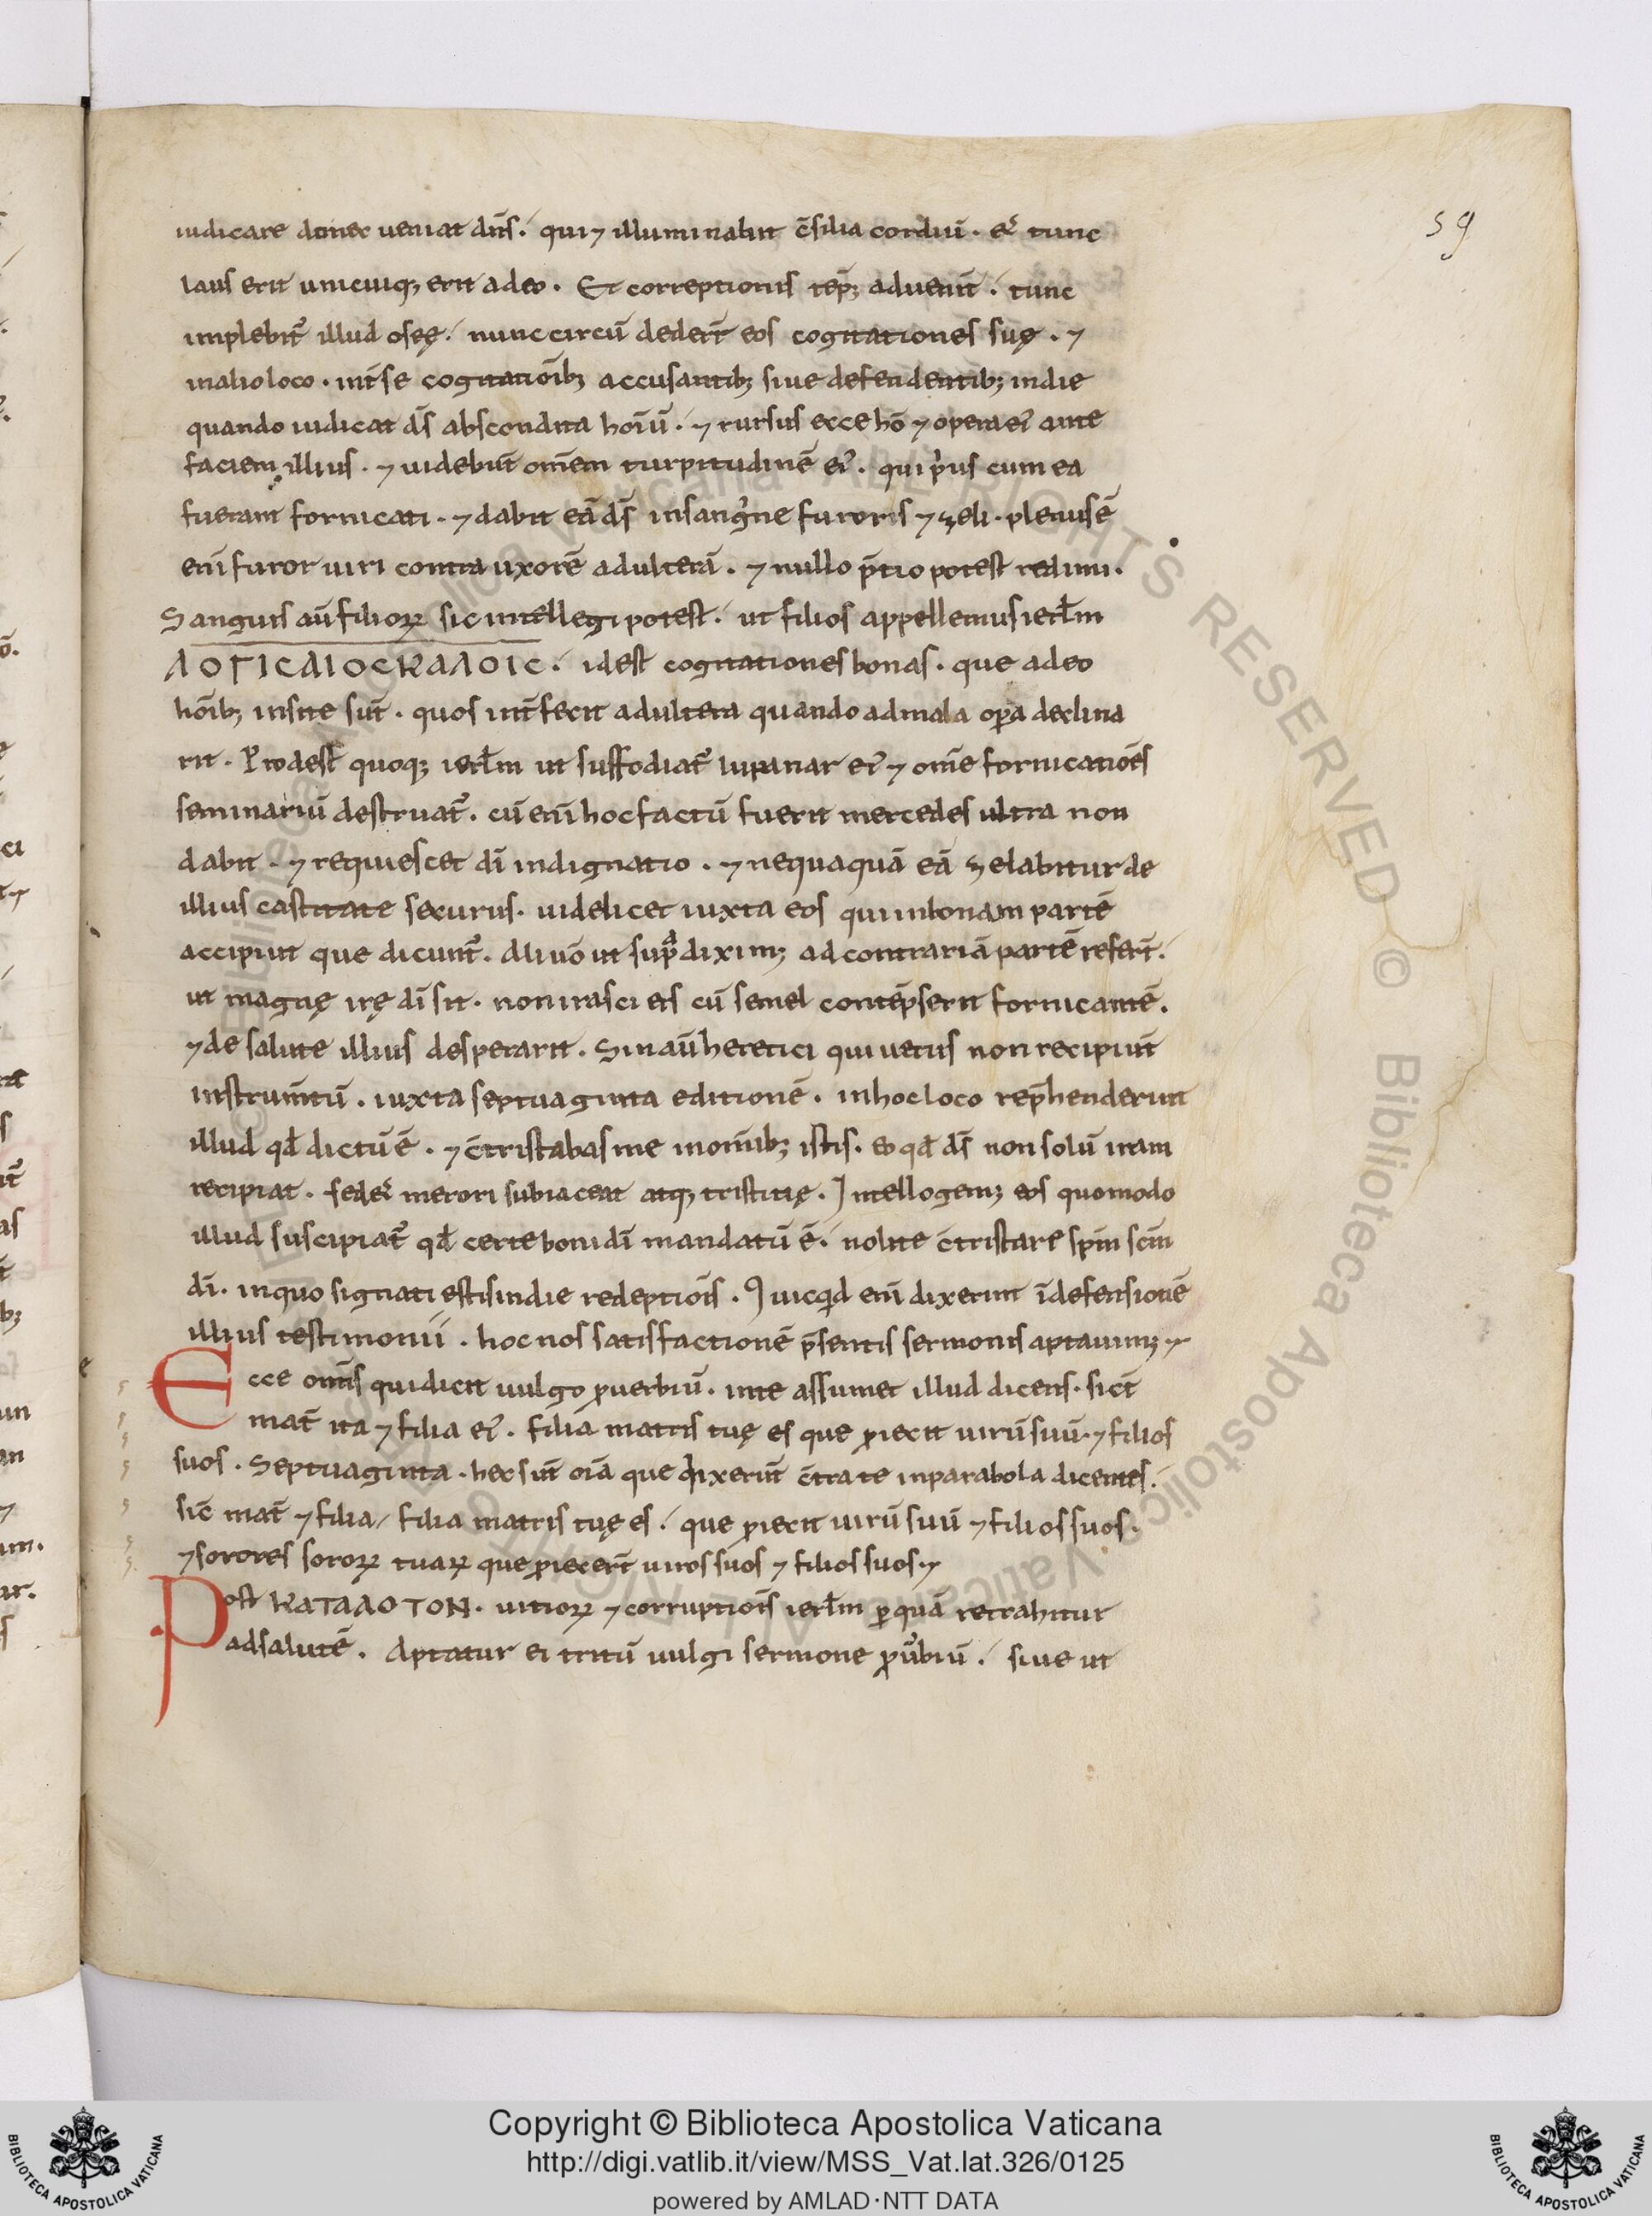 59
iudicare donec ueniat dn̄s. qui ⁊ illuminabit c̄silia cordiū. & tunc
laus erit unicuiq; erit adeo. Et correptionis tep; aduenit̄. tunc
implebit᷑ illud oseę. nunc circū dedert̄ eos cogitationes suę. ⁊
inalio loco. int̄ se cogitatiōib; accusantib; siue defendentib; indie
quando iudicat ds̄ abscondita hoīū. ⁊ rursus ecce hō ⁊ opera ei᷑ ante
faciem illius. ⁊ uidebūt om̄em turpitudinē ei᷑. qui p̍us cum ea
fuerant fornicati. ⁊ dabit eā ds̄ insang̍ne furoris ⁊ zeli. plenus ē
eni᷑ furor uiri contra uxorē adulterā. ⁊ nullo p̄tio potest redimi.
Sanguis aū filioꝝ sic intellegi potest. ut filios appellemus ierl̄m
ΛΟΓΙCΛΙΟCΚΑΛΟΙC. idest cogitationes bonas. que adeo
hōib; insite sūt. quos int̄fecit adultera quando admala opa declina
rit. Prodest quoq; ierl̄m ut suffodiat᷑ lupanar ei᷑ ⁊ omē fornicatiōes
seminariū destruat᷑. cū eni᷑ hoc factū fuerit mercedes ultra non
dabit. ⁊ requiescet dī indignatio. ⁊ nequaquā eā zelabitur de
illius castitate securus. uidelicet iuxta eos qui inbonam partē
accipiūt que dicunt᷑. Alii uō ut sup̄ dixim; ad contrariā partē refert̄.
ut magnę irę dī sit. non irasci eis cū semel contēpserit fornicantē.
⁊ de salute illius desperarit. Sin aū heretici qui uetus non recipiūt
instrum̄tū. iuxta septuaginta editionē. inhoc loco rep̄henderunt
illud qd̄ dictū ē. ⁊ c̄tristabas me inom̄ib; istis. eo qd̄ ds̄ non solū iram
recipiat. sed & merori subiaceat atq; tristitię. Intellogem; eos quomodo
illud suscipiat᷑ qd̄ certe boni dī mandatū ē. nolite c̄tristare spm̄ scm̄
dī. inquo signati estis indie redeptiōis. Quicq̍d eni᷑ dixerint īdefensionē
illius testimonii. hoc nos satisfactionē p̄sentis sermonis aptauim;
Ecce om̄is qui dicit uulgo ꝓuerbiū. inte assumet illud dicens. sic̄t
mat̄ ita ⁊ filia ei᷑. filia matris tuę es que ꝓiecit uirū suū. ⁊ filios
suos. Septuaginta. hec sūt oīa que dixerūt c̄tra te inparabola dicentes.
sic̄ mat̄ ⁊ filia, filia matris tuę es. que ꝓiecit uirū suū ⁊ filios suos.
⁊ sorores soroꝝ tuaꝝ que ꝓiecert̄ uiros suos ⁊ filios suos
Post ΚΑΤΑΛΟΤΟΝ. uitioꝝ ⁊ corruptiōis ierl̄m ꝑ quā retrahitur
adsalutē. Aptatur ei tritū uulgi sermone ꝓūbiū. siue ut
Copyright © Biblioteca Apostolica Vaticana
http://digi.vatlib.it/view/MSS_Vat.lat.326/0125
powered by AMLAD·NTT DATA